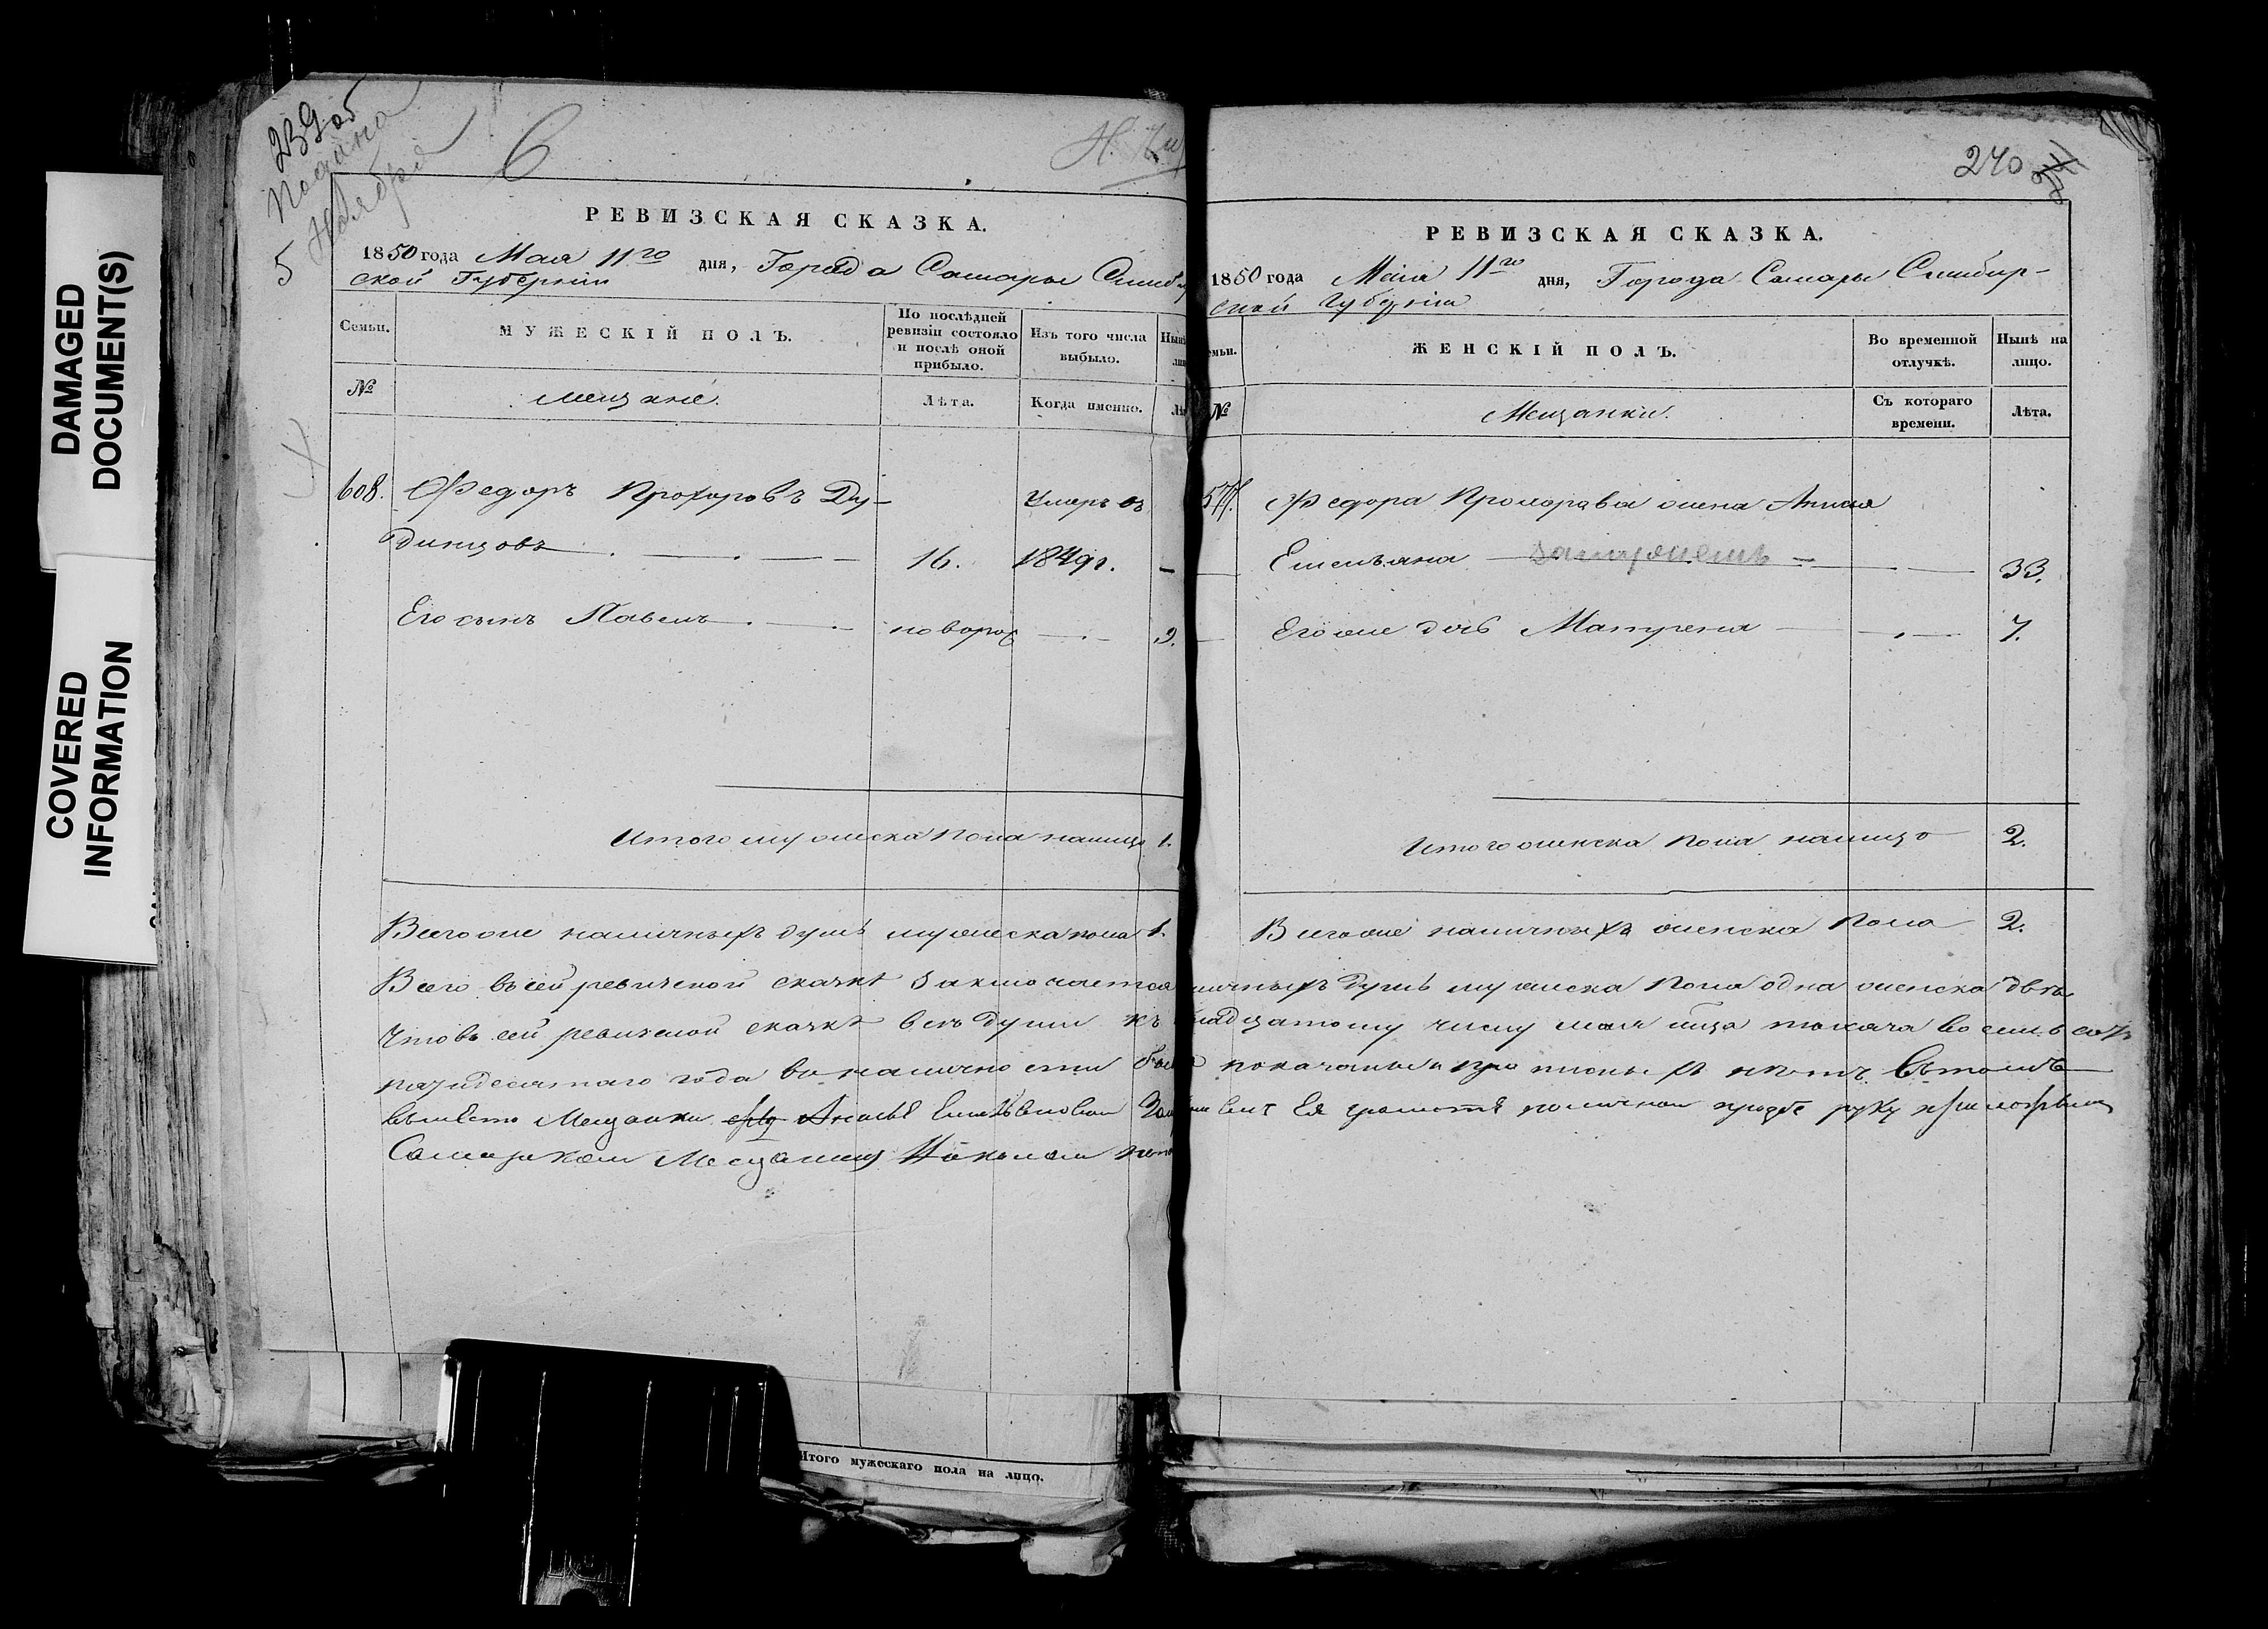 DAMAGED
DOCUMENT(S)
COVERED
INFORMATION
239 об
Подана
5 Ноября
6
РЕВИЗСКАЯ СКАЗКА.
1850 года Мая 11го дня, Города Самары Симбир
ской Губерніи
Семьи.
МУЖЕСКІЙ ПОЛЪ.
По послѣдней
ревизіи состояло
и послѣ оной
прибыло.
Изъ того числа
выбыло.
№
мещане.
Лѣта.
Когда именно.
608. Федоръ Прохоровъ Ду-
Умеръ въ
динцовъ 16. 1849г. -
Его сынъ Павелъ новорож 9.
Итого мужеска пола налицо 1.
Всего же наличныхъ душъ мужеска пола 1.
Всего въ сей ревизской сказкѣ заключается
Что въ сей ревизской сказкѣ всѣ души къ
пятидесятаго года въ наличности
вместо Мещанки Анисьи Емельяновой
Самарской Мещанинъ
Итого мужескаго пола на лицо.
240
РЕВИЗСКАЯ СКАЗКА.
1850 года Маія 11го дня, Города Самары Симбир-
ской Губерніи
ЖЕНСКІЙ ПОЛЪ.
Во временной
отлучкѣ.
Нынѣ на
лицо.
№
Мещанки.
Съ котораго
времени.
Лѣта.
Федора Прохорова жена Анисья
Емельяна замужемъ 33.
Его же дочь Матрена 7.
Итого женска пола налицо 2.
Всего же наличныхъ женска пола 2.
душъ мужеска пола одна женска двѣ
числу мая мца тысяча восемь сотъ
показаны и прописныхъ нетъ Въ томъ
Ея грамотѣ по личной прозбе руку приложилъ